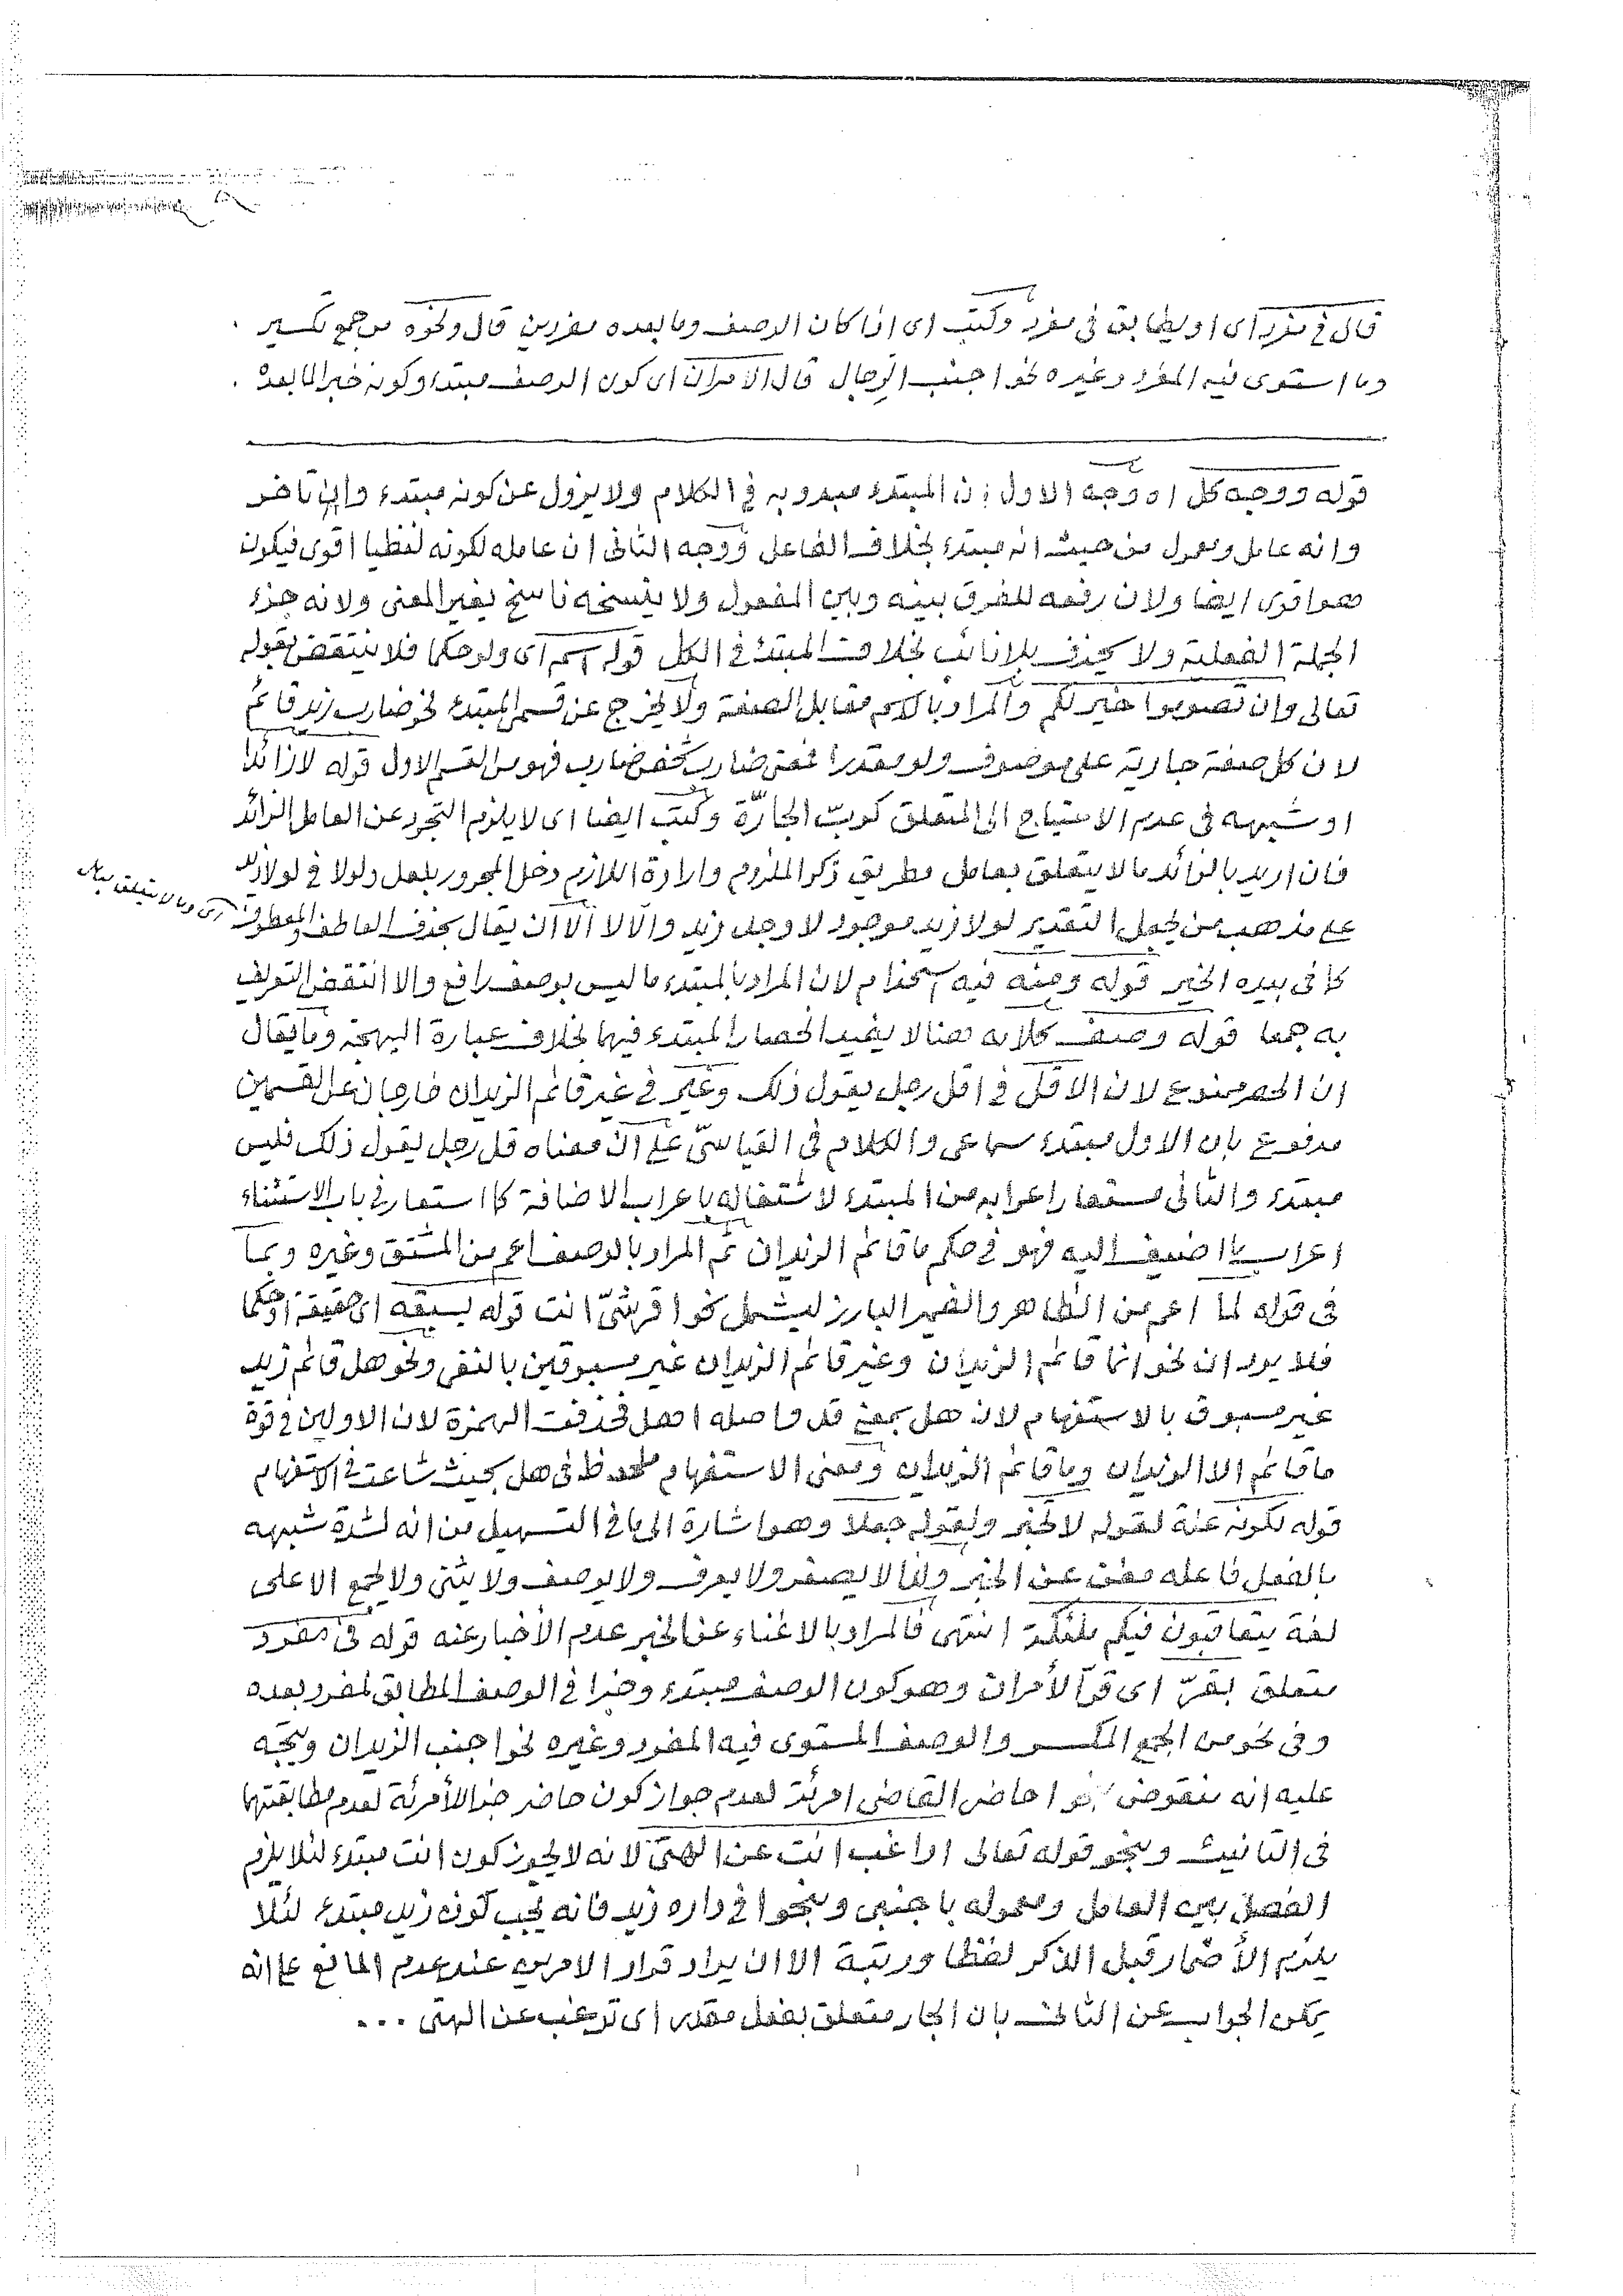 قال في مفرد اى او يطابق فى مفرد وكتب اى اذا كان الوصف وما بعده مفردين قال ونحوه من جمع تكسير .
وما استوى فيه المفرد وغيره نحو اجنب الرجال قال الامران اى كون الوصف مبتدا وكونه خبرا لما بعده .
قوله ووجه كل اه ووجه الاول ان المبتدء مبدو به في الكلام ولا يزول عن كونه مبتدء وإن تاخر
وانه عامل ومعمول من حيث انه مبتدء بخلاف الفاعل ووجه الثانى ان عامله لكونه لفظيا اقوى فيكون
هو اقوى ايضا ولان رفعه للفرق بينه وبين المفعول ولا ينسخه ناسخ يغير المعنى ولانه جزء
الجملة الفعلية ولا يحذف بلا نائب بخلاف المبتدء فى الكل قوله اسم اى ولو حكما فلا ينتقض بقوله
تعالى وان تصوموا خير لكم والمراد بالاسم مقابل الصفة ولا يخرج عن قسم المبتدء نحو ضارب زيد قائم
لان كل صفة جارية على موصوف ولو مقدرا فمعنى ضارب شخص ضارب فهو من القسم الاول قوله لا زائدا
او شبهه فى عدم الاحتياج الى المتعلق كربّ الجارّة وكتب ايضا اى لا يلزم التجرد عن العامل الزائد
فان اريد بالزائد ما لا يتعلق بعامل بطريق ذكر الملزوم وارادة اللازم دخل المجرور بلعل ولولا فى لولا زيد
على مذهب من يجعل التقدير لولا زيد موجود لا وجل زيد والا لا الا ان يقال بحذف العاطف والمعطوف
اى وما لا يتعلق بعامل
كما فى بيده الخير قوله ومنه فيه استخدام لان المراد بالمبتدء ما ليس بوصف رافع والا انتقض التعريف
به جمعا قوله وصف كلامه هنا لا يفيد انحصار المبتدء فيهما بخلاف عبارة البهجة وما يقال
ان الحصر ممنوع لان الاقل فى اقل رجل يقول ذلك وغير فى غير قائم الزيدان خارجان عن القسمين
مدفوع بان الاول مبتدء سماعى والكلام فى القياسىّ على ان معناه قل رجل يقول ذلك فليس
مبتدء والثانى مستعار اعرابه من المبتدء لاشتغاله باعراب الاضافة كما استعار فى باب الاستثناء
اعراب ما اضيف اليه فهو فى حكم ما قائم الزيدان ثم المراد بالوصف اعم من المشتق وغيره وبما
فى قوله لما اعم من الظاهر والضمير البارز ليشمل نحو اقرشىّ انت قوله يسبقه اى حقيقة او حكما
فلا يرد ان نحو انما قائم الزيدان وغير قائم الزيدان غير مسبوقين بالنفى ونحو هل قائم زيد
غير مسبوق بالاستفهام لان هل بمعنى قد واصله اهل فحذفت الهمزة لان الاولين فى قوة
ما قائم الا الزيدان وما قائم الزيدان ومعنى الاستفهام ملحوظ فى هل بحيث شاعت فى الاستفهام
قوله لكونه علة لقوله لا لخبر ولقوله جعلا وهو اشارة الى ما فى التسهيل من انه لشدة شبهه
بالفعل فاعله مغن عن الخبر ولذا لا يصغر ولا يعرف ولا يوصف ولا يثنى ولا يجمع الا على
لغة يتعاقبون فيكم ملئكة انتهى فالمراد بالاغناء عن الخبر عدم الأخبار عنه قوله فى مفرد
متعلق بقرّ اى قرّ الأمران وهو كون الوصف مبتدء وخبرا فى الوصف المطابق لمفرد بعده
وفى نحو من الجمع المكسر والوصف المستوى فيه المفرد وغيره نحو اجنب الزيدان ويتجّه
عليه انه منقوض بنحو احاضر القاضى امرئة لعدم جواز كون حاضر خبرا لأمرئة لعدم مطابقتها
فى التانيث وبنحو قوله تعالى اراغب انت عن الهتى لانه لا يجوز كون انت مبتدء لئلا يلزم
الفصل بين العامل ومعموله باجنبى وبنحو افى داره زيد فانه يجب كون زيد مبتدء لئلا
يلزم الأضمار قبل الذكر لفظا ورتبة الا ان يراد قرار الامرين عند عدم المانع على انه
يمكن الجواب عن الثالث بان الجار متعلق بفعل مقدر اى ترغب عن الهتى ...